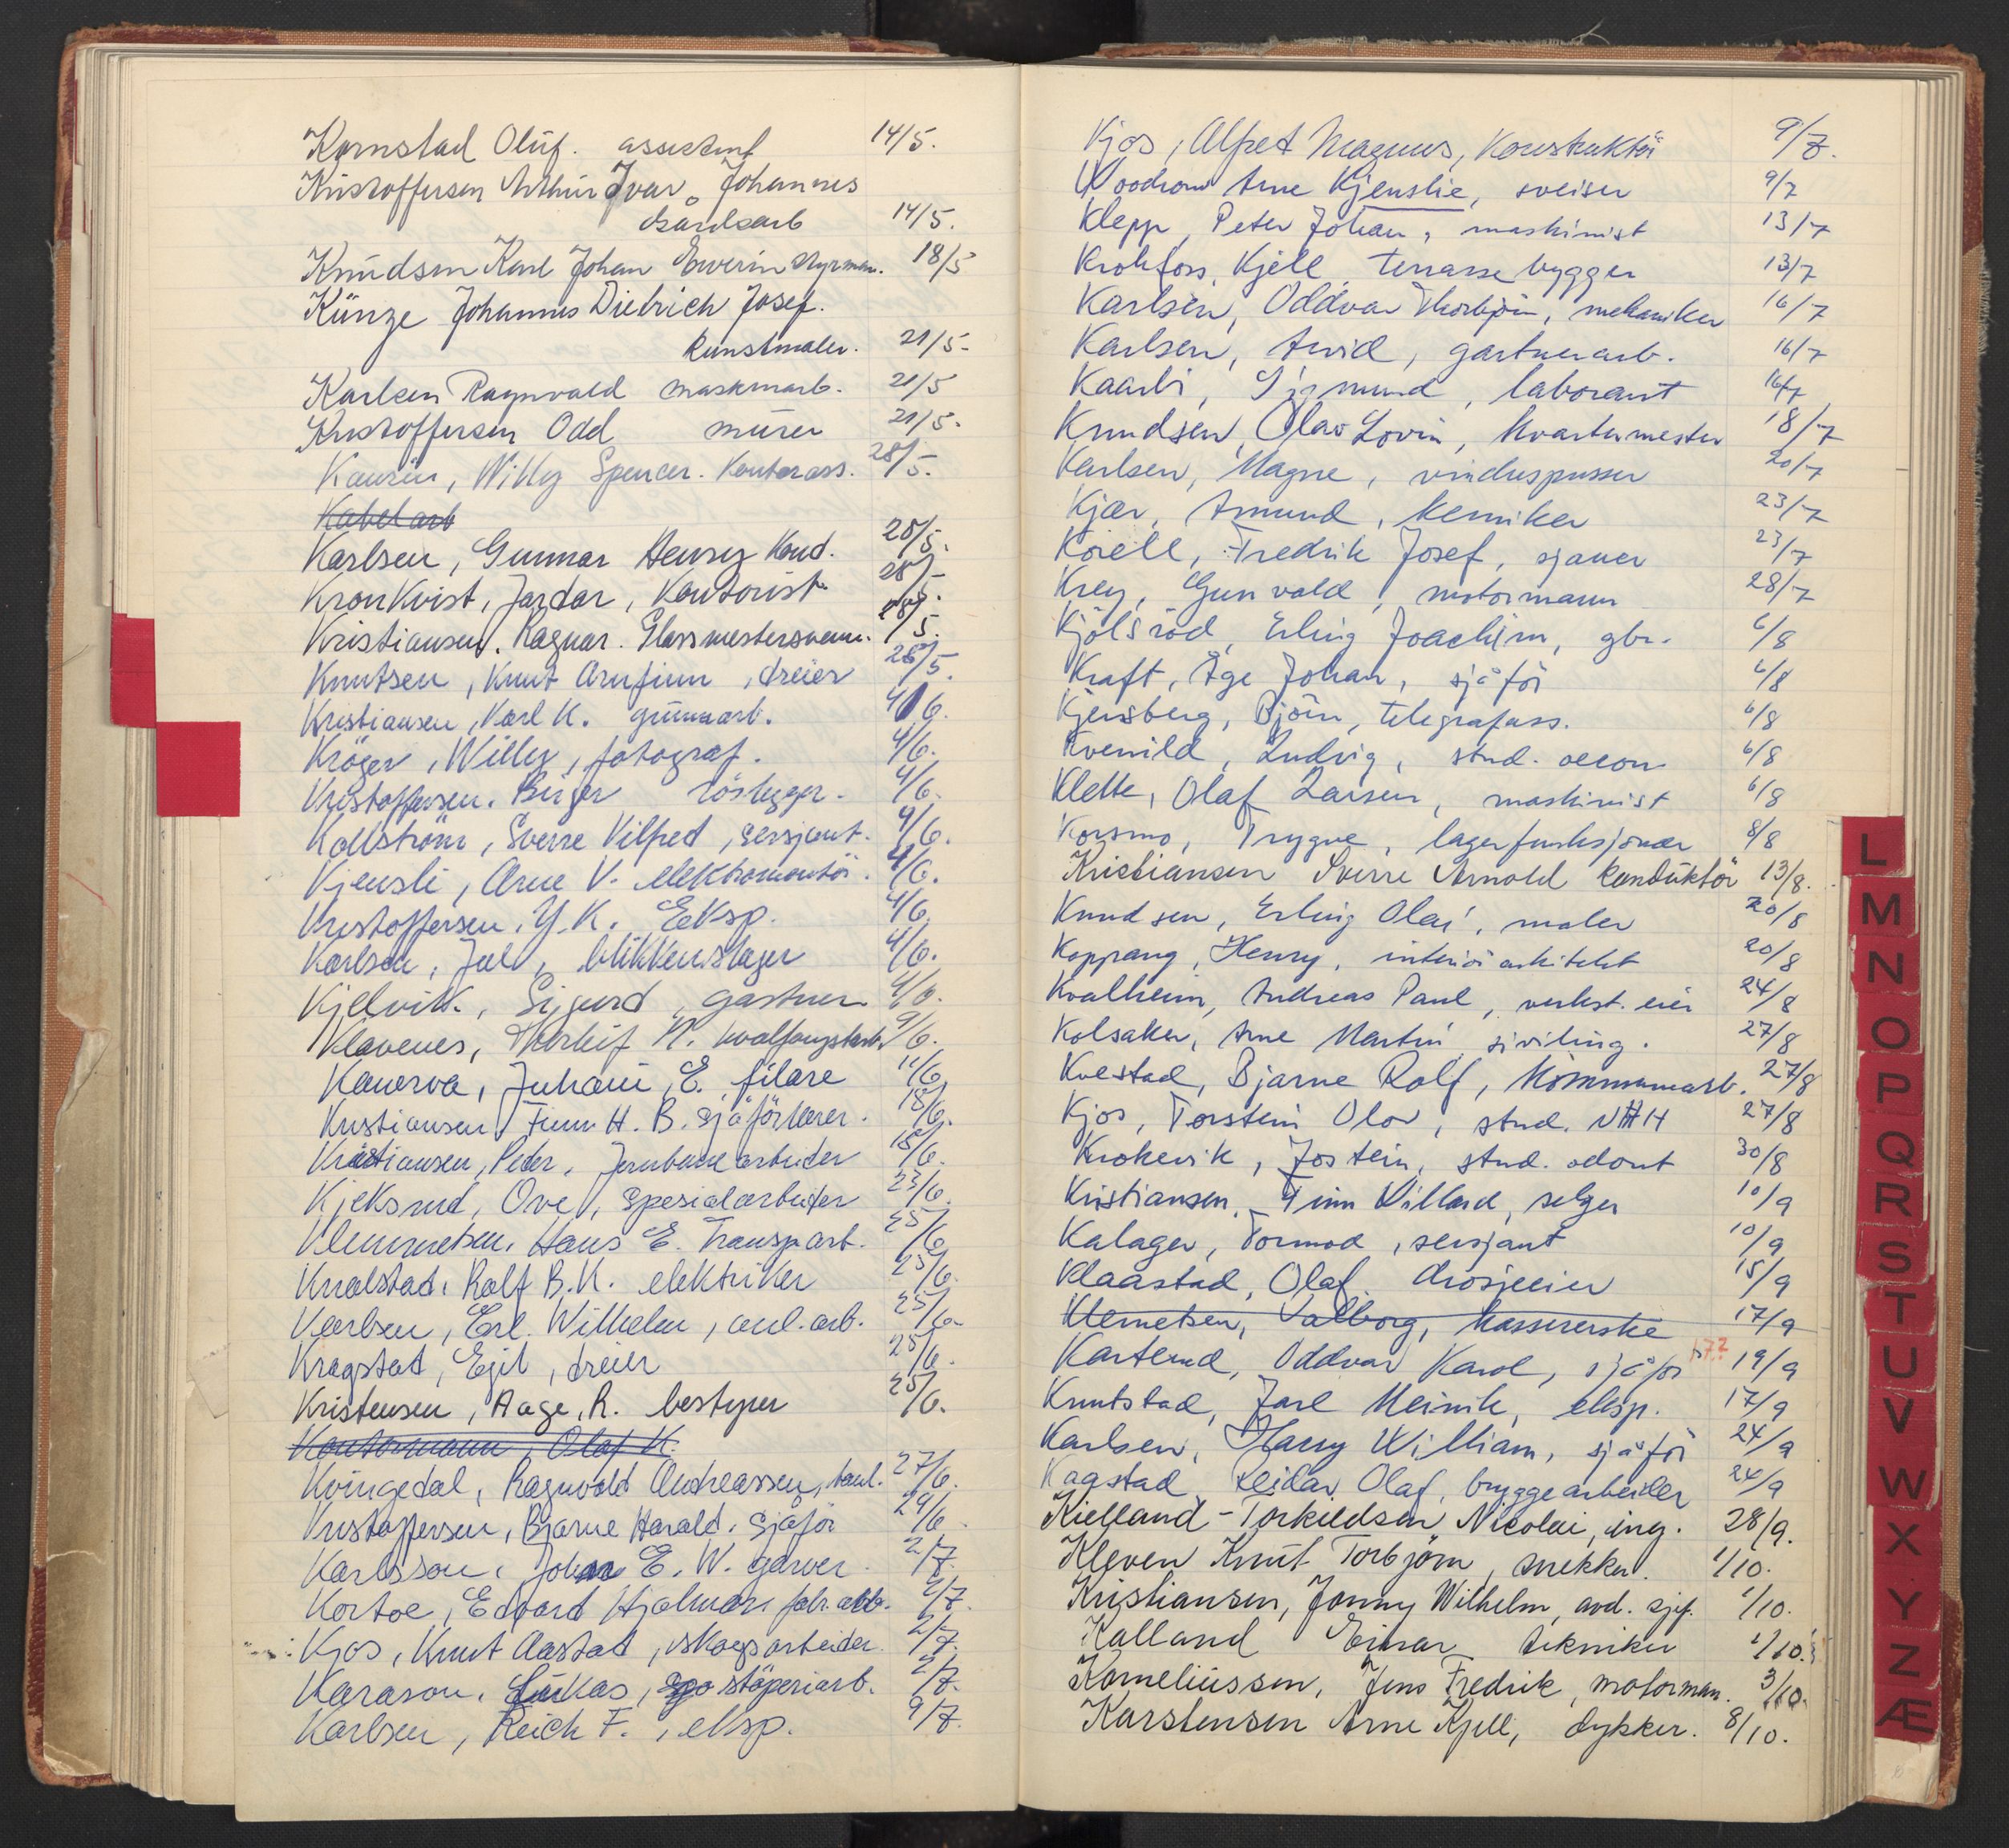 Kornstad Oluf. assistent 14/5.
Kristoffersen Arthur Ivar Johannes
Gårdsarb 14/5.
Knudsen Karl Johan Ewerin styrman. 18/5
Künze Johannes Dietrich Josef.
Kunstmaler. 21/5-
Karlsen Ragnvald maskinarb. 21/5
Kristoffersen Odd murer 21/5.
Kaurin, Willy Spencer. Kontorass. 28/5.
Kabel arb
Karlsen, Gunnar Henry Kond. 28/5.
Kronkvist, Jardar, Kontorist 28/5.
Kristiansen, Ragnar. Glassmestersvenn. 28/5.
Knutsen, Knut Arnfinn, dreier 28/5.
Kristiansen, Karl K. grunnarb. 4/6.
Kröger, Willy, fotograf. 4/6.
Kristoffersen. Birger rörlegger. 4/6.
Kallström, Sverre Vilfred, sersjant. 4/6.
Kjensli, Arne V. elektromontör. 4/6.
Kristoffersen. Y. K. Eksp. 4/6.
Karlsen, Jul, blikkenslager 4/6.
Kjelvik, Sigurd, gartner 4/6.
Klavenes, Thorleif N. hvalfangstarb. 9/6.
Kanerva, Juhani, E. filare 11/6
Kristiansen, Finn H. B. sjåförlærer. 18/6.
Kristiansen, Peder, Jernbanearbeider 18/6.
Kjeksrud, Ove, spesialarbeider 23/6.
Klemmetsen, Hans E. Transp. arb. 25/6
Knalstad, Rolf B. K. elektriker 25/6.
Karlsen, Erl. Wilhelm, anl. arb. 25/6.
Kragstad, Egil, dreier 25/6.
Kristensen, Aage, R. bestyrer 25/6.
Kontormann, Olaf K.
Kvingedal, Ragnvald Andreassen, 27/6.
Kristoffersen, Bjarne Harald. sjåför 29/6.
Karlsson, Johan E. W. garver. 2/7.
Kortoe, Edvard Hjalmar, fabr. arb. 2/7.
Kjos, Knut Aastad, skogsarbeider. 2/7.
Karason, Lukas, støperiarb. 2/7.
Karlsen, Reich F., eksp. 9/7.
Kjos, Alfred Magnus, Konstruktör 9/7.
Woodrow Arne Kjenslie, sveiser 9/7
Klepp, Peter Johan, maskinist 13/7
Krokfoss, Kjell, terrassebygger 13/7
Karlsen, Oddvar Thorbjörn, mekaniker 16/7
Karlsen, Arvid, gartnerarb. 16/7
Kaarbi, Sigmund, laborant 16/7
Knudsen, Olav Lovin, kvartermester 18/7
Karlsen, Magne, vinduspusser 20/7
Kjær, Amund, kemiker 23/7
Korell, Fredrik Josef, sjauer 23/7
Krey, Gunvald, motormann 28/7
Kjölsröd, Erling Joachim, gbr. 6/8
Kraft, Åge Johan, sjåför 6/8
Kjensberg, Björn, telegrafass. 6/8
Kvenild, Ludvig, stud. oecon 6/8
Klette, Olaf Larsen, maskinist 6/8
Korsmo, Trygve, lagerfunksjonær 8/8
Kristiansen Sverre Arnold Konduktör 13/8.
Knudsen, Erling Olai, maler 20/8
Koppang, Henry, interiörarkitekt 20/8
Kvalheim, Andreas Paul, verkst. eier 24/8
Kolsaker, Arne Martin, siviling. 27/8
Kvestad, Bjarne Rolf, Kommunearb. 27/8
Kjos, Torstein Olov, stud. NHH 27/8
Krokevik, Jostein, stud. odont 30/8
Kristiansen, Finn Villard, selger 10/9
Kalager, Tormod, sersjant 10/9
Klaastad, Olaf. drosjeeier 15/9
Klemetsen, Valborg, Massererske 17/9
Karterud, Oddvar Karol, sjåför 17? 19/9
Knutstad, Jarl Meinik, eksp. 17/9
Karlsen, Harry William, sjåför 24/9
Kaastad, Reidar Olaf, bryggearbeider 24/9
Kielland-Torkildsen Nicolai, ing. 28/9.
Kleven Knut Torbjörn, snekker. 1/10.
Kristiansen, Jonny Wilhelm, avd. sjef. 1/10.
Kalland Einar tekniker 1/10.
Korneliussen, Jens Fredrik, motorman. 3/10.
Karstensen Arne Kjell, dykker. 8/10.
L
M
N
O
P
Q
R
S
T
U
V
W
X
Y
Z
Æ